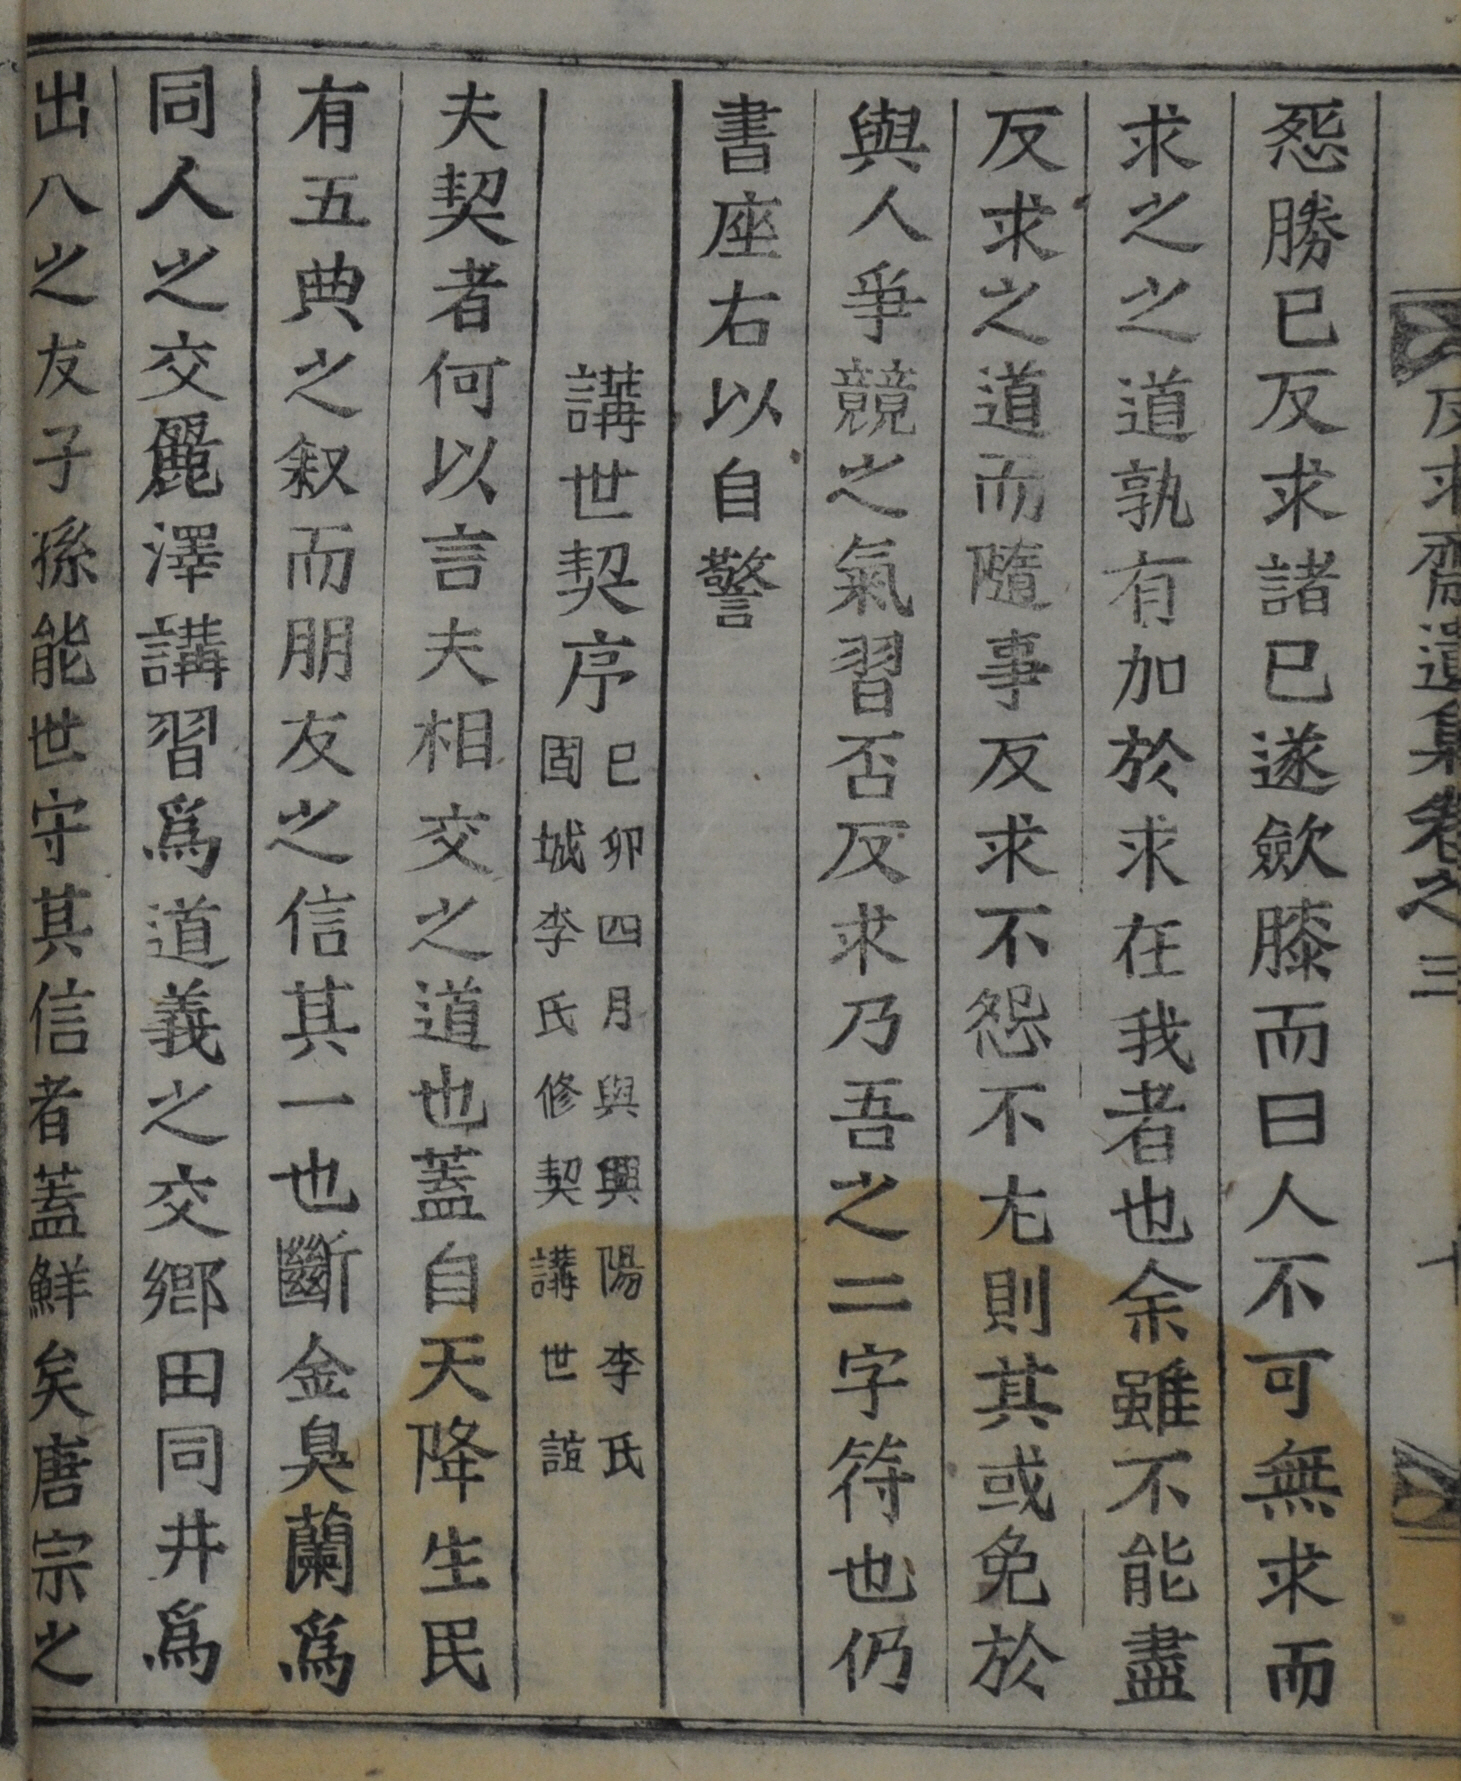 反求齋遺集卷之三 十
怨勝已反求諸已遂斂膝而曰人不可無求而
求之之道孰有加於求在我者也余雖不能盡
反求之道而隨事反求不怨不尤則其或免於
與人爭競之氣習否反求乃吾之二字符也仍
書座右以自警
講世契序 已卯四月與興陽李氏
固城李氏修契講世誼
夫契者何以言夫相交之道也蓋自天降生民
有五典之叙而朋友之信其一也斷金臭蘭爲
同人之交麗澤講習爲道義之交鄉田同井爲
出入之友子孫能世守其信者蓋鮮矣唐宗之